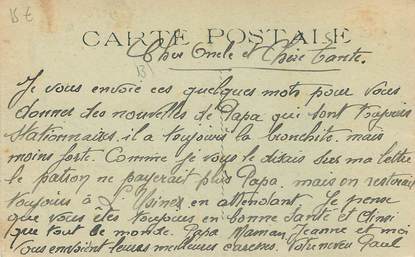 15 €
CARTE POSTALE
Cher Oncle et Chère tante.
Je vous envoie ces quelques mots pour vous
donner des nouvelles de Papa qui sont toujours
stationnaires. il a toujours la bronchite. mais
moins forte. Comme je vous le disais sur ma lettre
le patron ne payerait plus Papa. mais on resterait
toujours à L'Usine. en attendant. Je pense
que vous êtes toujours en bonne santé et Ainsi
que tout le monde. Papa Maman Jeanne et moi
vous envoient leurs meilleurs caresses. Votre neveu Paul